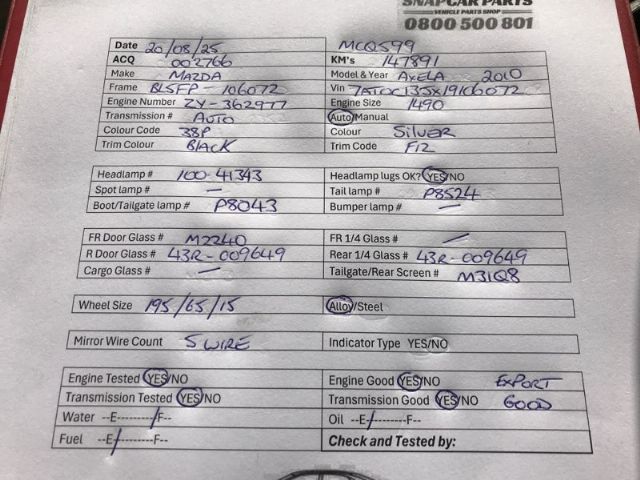 SNAPCAR PARTS
VEHICLE PARTS SHOP
0800 500 801
Date 20/08/25 MCQ599
ACQ 002766 KM's 147891
Make MAZDA Model & Year AXELA 2010
Frame BL5FP-106072 Vin
Engine Number ZY-362977 Engine Size 1490
Transmission # AUTO Auto/Manual
Colour Code 38P Colour SILVER
Trim Colour BLACK Trim Code F12
Headlamp # 100-41343 Headlamp lugs OK? YES/NO
Spot lamp # — Tail lamp # P8524
Boot/Tailgate lamp # P8043 Bumper lamp # —
FR Door Glass # M2240 FR 1/4 Glass # —
R Door Glass # 43R-009649 Rear 1/4 Glass # 43R-009649
Cargo Glass # — Tailgate/Rear Screen # M31Q8
Wheel Size 195/65/15 Alloy/Steel
Mirror Wire Count 5 WIRE Indicator Type YES/NO
Engine Tested YES/NO Engine Good YES/NO EXPORT
Transmission Tested YES/NO Transmission Good YES/NO GOOD
Water --E---------/F-- Oil --E-/--------F--
Fuel --E-/--------F-- Check and Tested by: